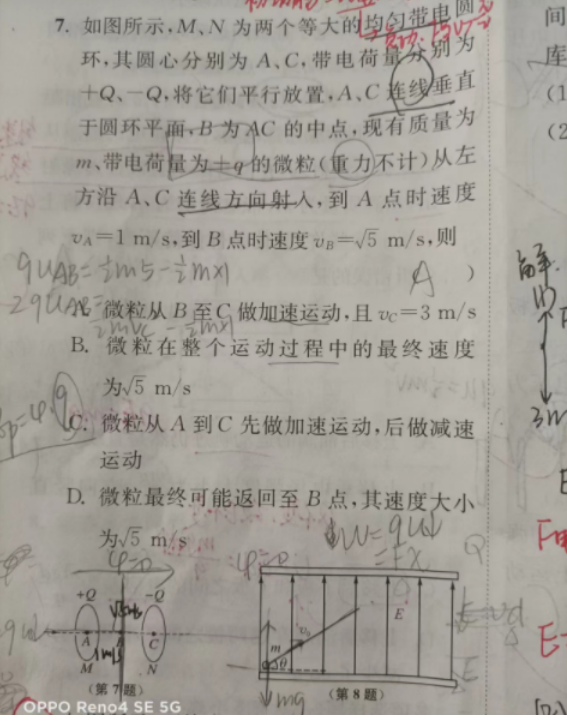 7. 如图所示,M、N 为两个等大的均匀带电圆
环,其圆心分别为 A、C,带电荷量分别为
+Q、-Q,将它们平行放置,A、C 连线垂直
于圆环平面,B 为 AC 的中点,现有质量为
m、带电荷量为+q 的微粒(重力不计)从左
方沿 A、C 连线方向射入,到 A 点时速度
v_A=1 m/s,到 B 点时速度 v_B=√5 m/s,则
qU_AB=½m5-½m×1
A )
2qU_AB=
A. 微粒从 B 至 C 做加速运动,且 v_C=3 m/s
B. 微粒在整个运动过程中的最终速度
为√5 m/s
C. 微粒从 A 到 C 先做加速运动,后做减速
运动
D. 微粒最终可能返回至 B 点,其速度大小
为√5 m/s
φ=0
+Q
-Q
A
B
C
M
N
(第 7 题)
E
v₀
m
θ
mg
(第 8 题)
间
库
(1
(2
解
(1)
OPPO Reno4 SE 5G